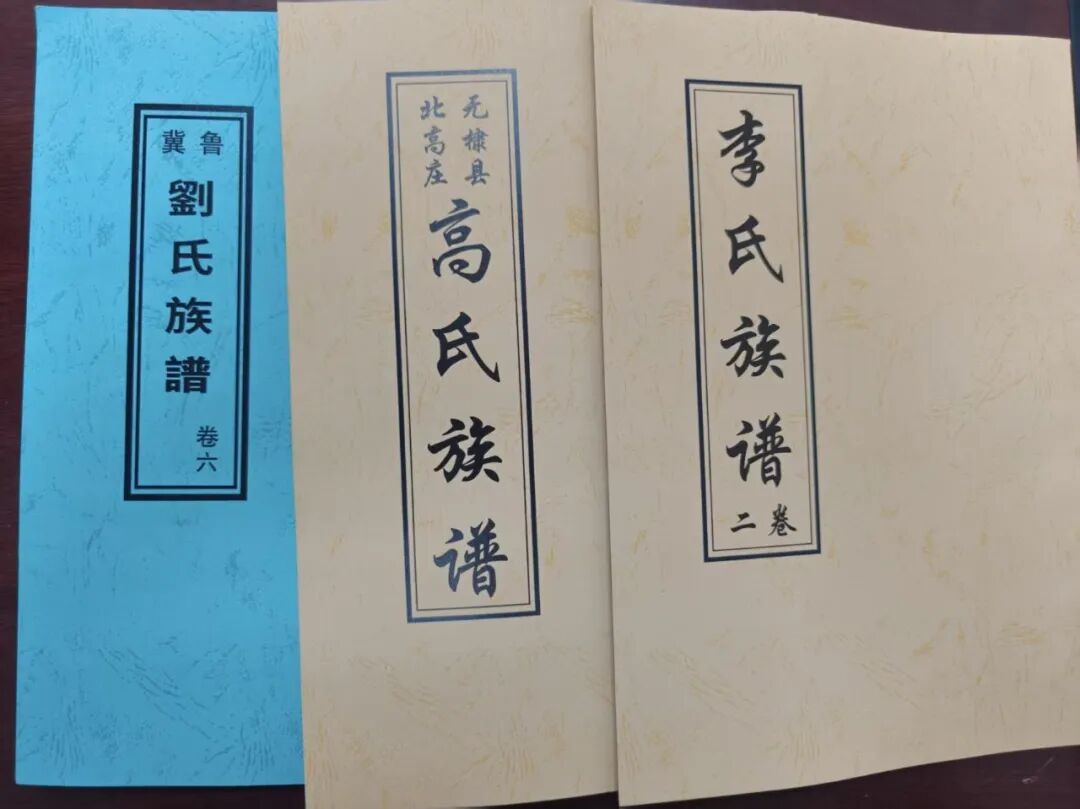 鲁冀
劉氏族譜
卷六
无棣县
北高庄
高氏族谱
李氏族谱
卷二